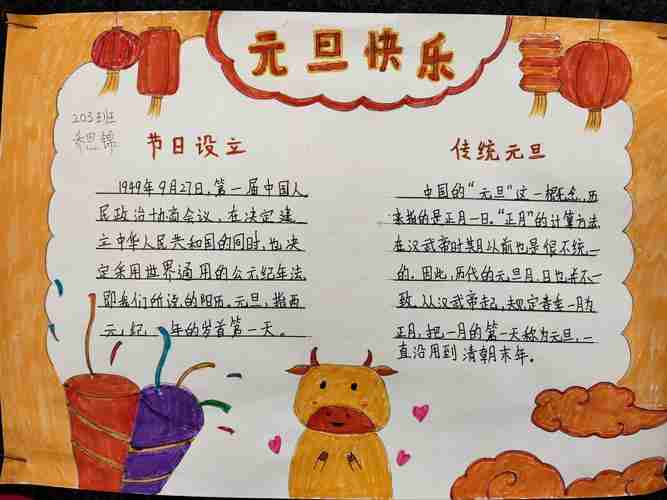 元旦快乐
203班
思锦
节日设立
1949年9月27日,第一届中国人
民政治协商会议,在决定建
立中华人民共和国的同时,也决
定采用世界通用的公元纪年法
即我们所说的阳历。元旦,指西
元,纪,一年的岁首第一天。
传统元旦
中国的“元旦”这一概念,历
来指的是正月一日。“正月”的计算方法
在汉武帝时期以前也是很不统一
的,因此,历代的元旦月、日也并不一
致。从汉武帝起,规定春一月为
正月,把一月的第一天称为元旦,一
直沿用到清朝末年。